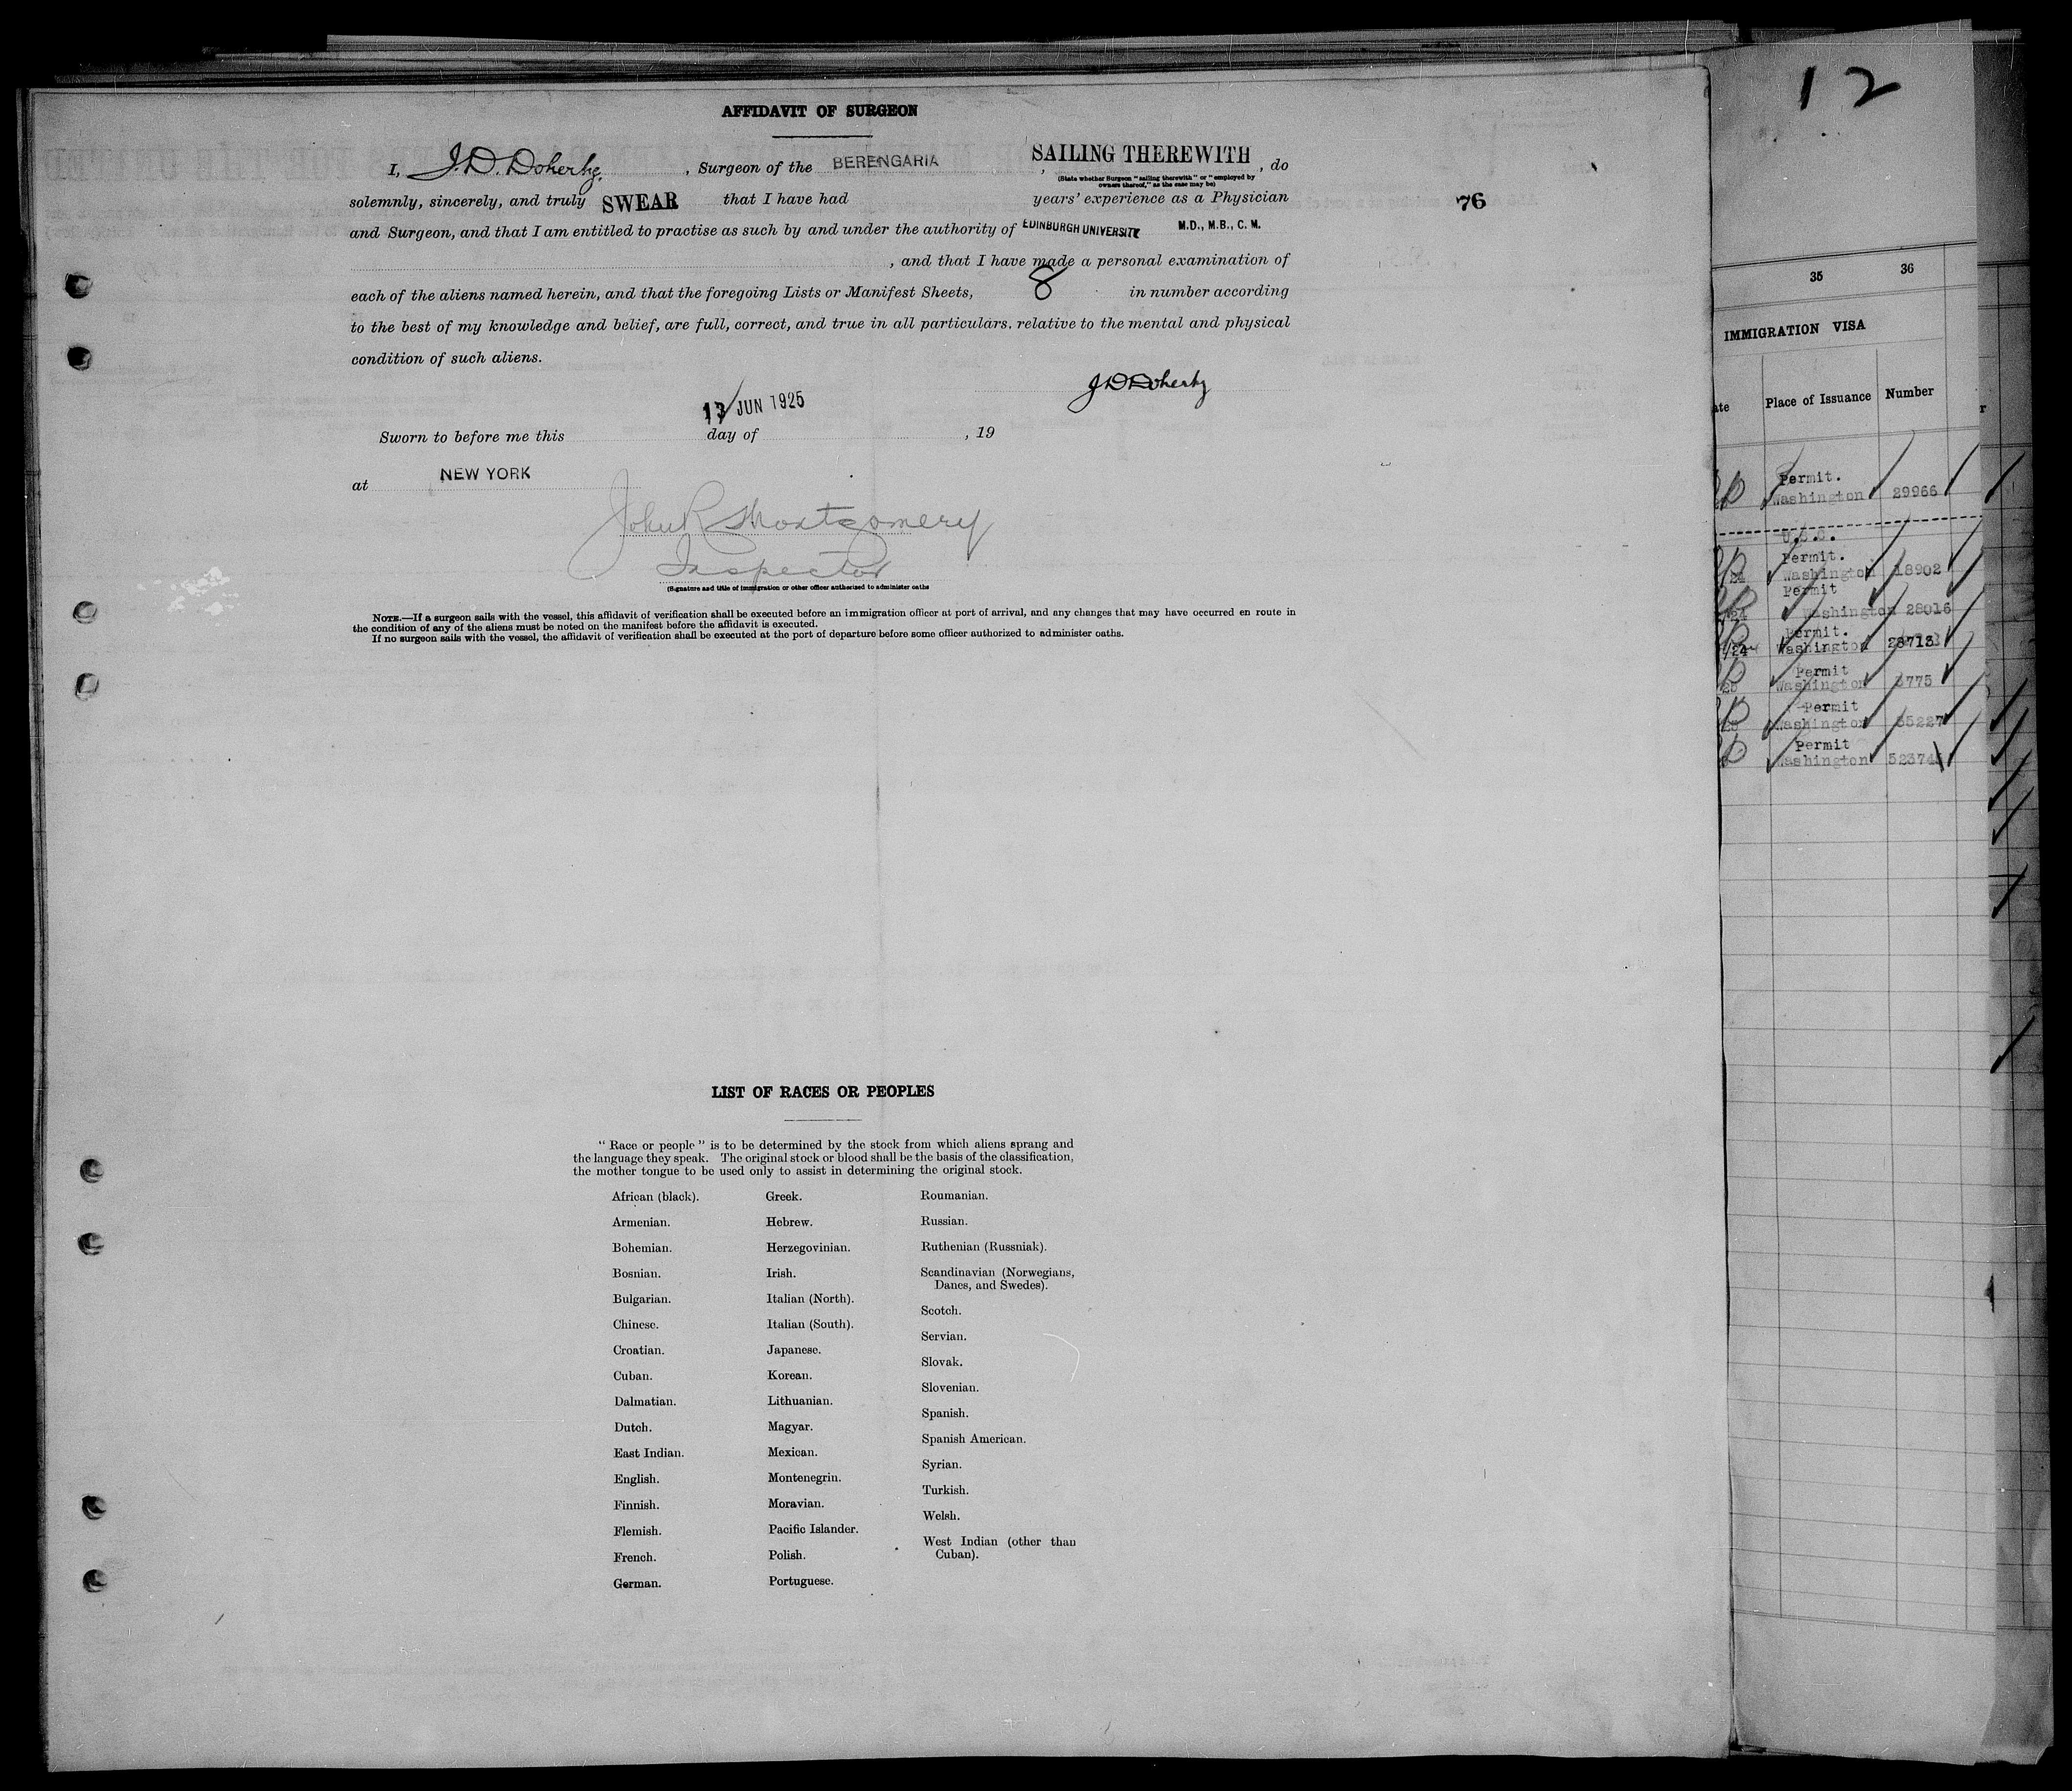 AFFIDAVIT OF SURGEON
I, J. D. Doherty, Surgeon of the BERENGARIA, SAILING THEREWITH, do
(State whether Surgeon "sailing therewith" or "employed by
owners thereof," as the case may be)
solemnly, sincerely, and truly SWEAR that I have had years' experience as a Physician
76
and Surgeon, and that I am entitled to practise as such by and under the authority of EDINBURGH UNIVERSITY M.D., M.B., C. M.
, and that I have made a personal examination of
each of the aliens named herein, and that the foregoing Lists or Manifest Sheets, 8 in number according
to the best of my knowledge and belief, are full, correct, and true in all particulars, relative to the mental and physical
condition of such aliens.
J D Doherty
JUN 1925
Sworn to before me this day of , 19
at NEW YORK
John R Montgomery
Inspector
(Signature and title of immigration or other officer authorized to administer oaths
NOTE.—If a surgeon sails with the vessel, this affidavit of verification shall be executed before an immigration officer at port of arrival, and any changes that may have occurred en route in
the condition of any of the aliens must be noted on the manifest before the affidavit is executed.
If no surgeon sails with the vessel, the affidavit of verification shall be executed at the port of departure before some officer authorized to administer oaths.
LIST OF RACES OR PEOPLES
"Race or people" is to be determined by the stock from which aliens sprang and
the language they speak. The original stock or blood shall be the basis of the classification,
the mother tongue to be used only to assist in determining the original stock.
African (black).
Armenian.
Bohemian.
Bosnian.
Bulgarian.
Chinese.
Croatian.
Cuban.
Dalmatian.
Dutch.
East Indian.
English.
Finnish.
Flemish.
French.
German.
Greek.
Hebrew.
Herzegovinian.
Irish.
Italian (North).
Italian (South).
Japanese.
Korean.
Lithuanian.
Magyar.
Mexican.
Montenegrin.
Moravian.
Pacific Islander.
Polish.
Portuguese.
Roumanian.
Russian.
Ruthenian (Russniak).
Scandinavian (Norwegians,
Danes, and Swedes).
Scotch.
Servian.
Slovak.
Slovenian.
Spanish.
Spanish American.
Syrian.
Turkish.
Welsh.
West Indian (other than
Cuban).
12
35 36
IMMIGRATION VISA
Place of Issuance Number
Permit.
Washington 29966
Permit.
Washington 18902
Permit
Washington 28016
Permit.
Washington
Permit
Washington
Permit
Washington
Permit
Washington